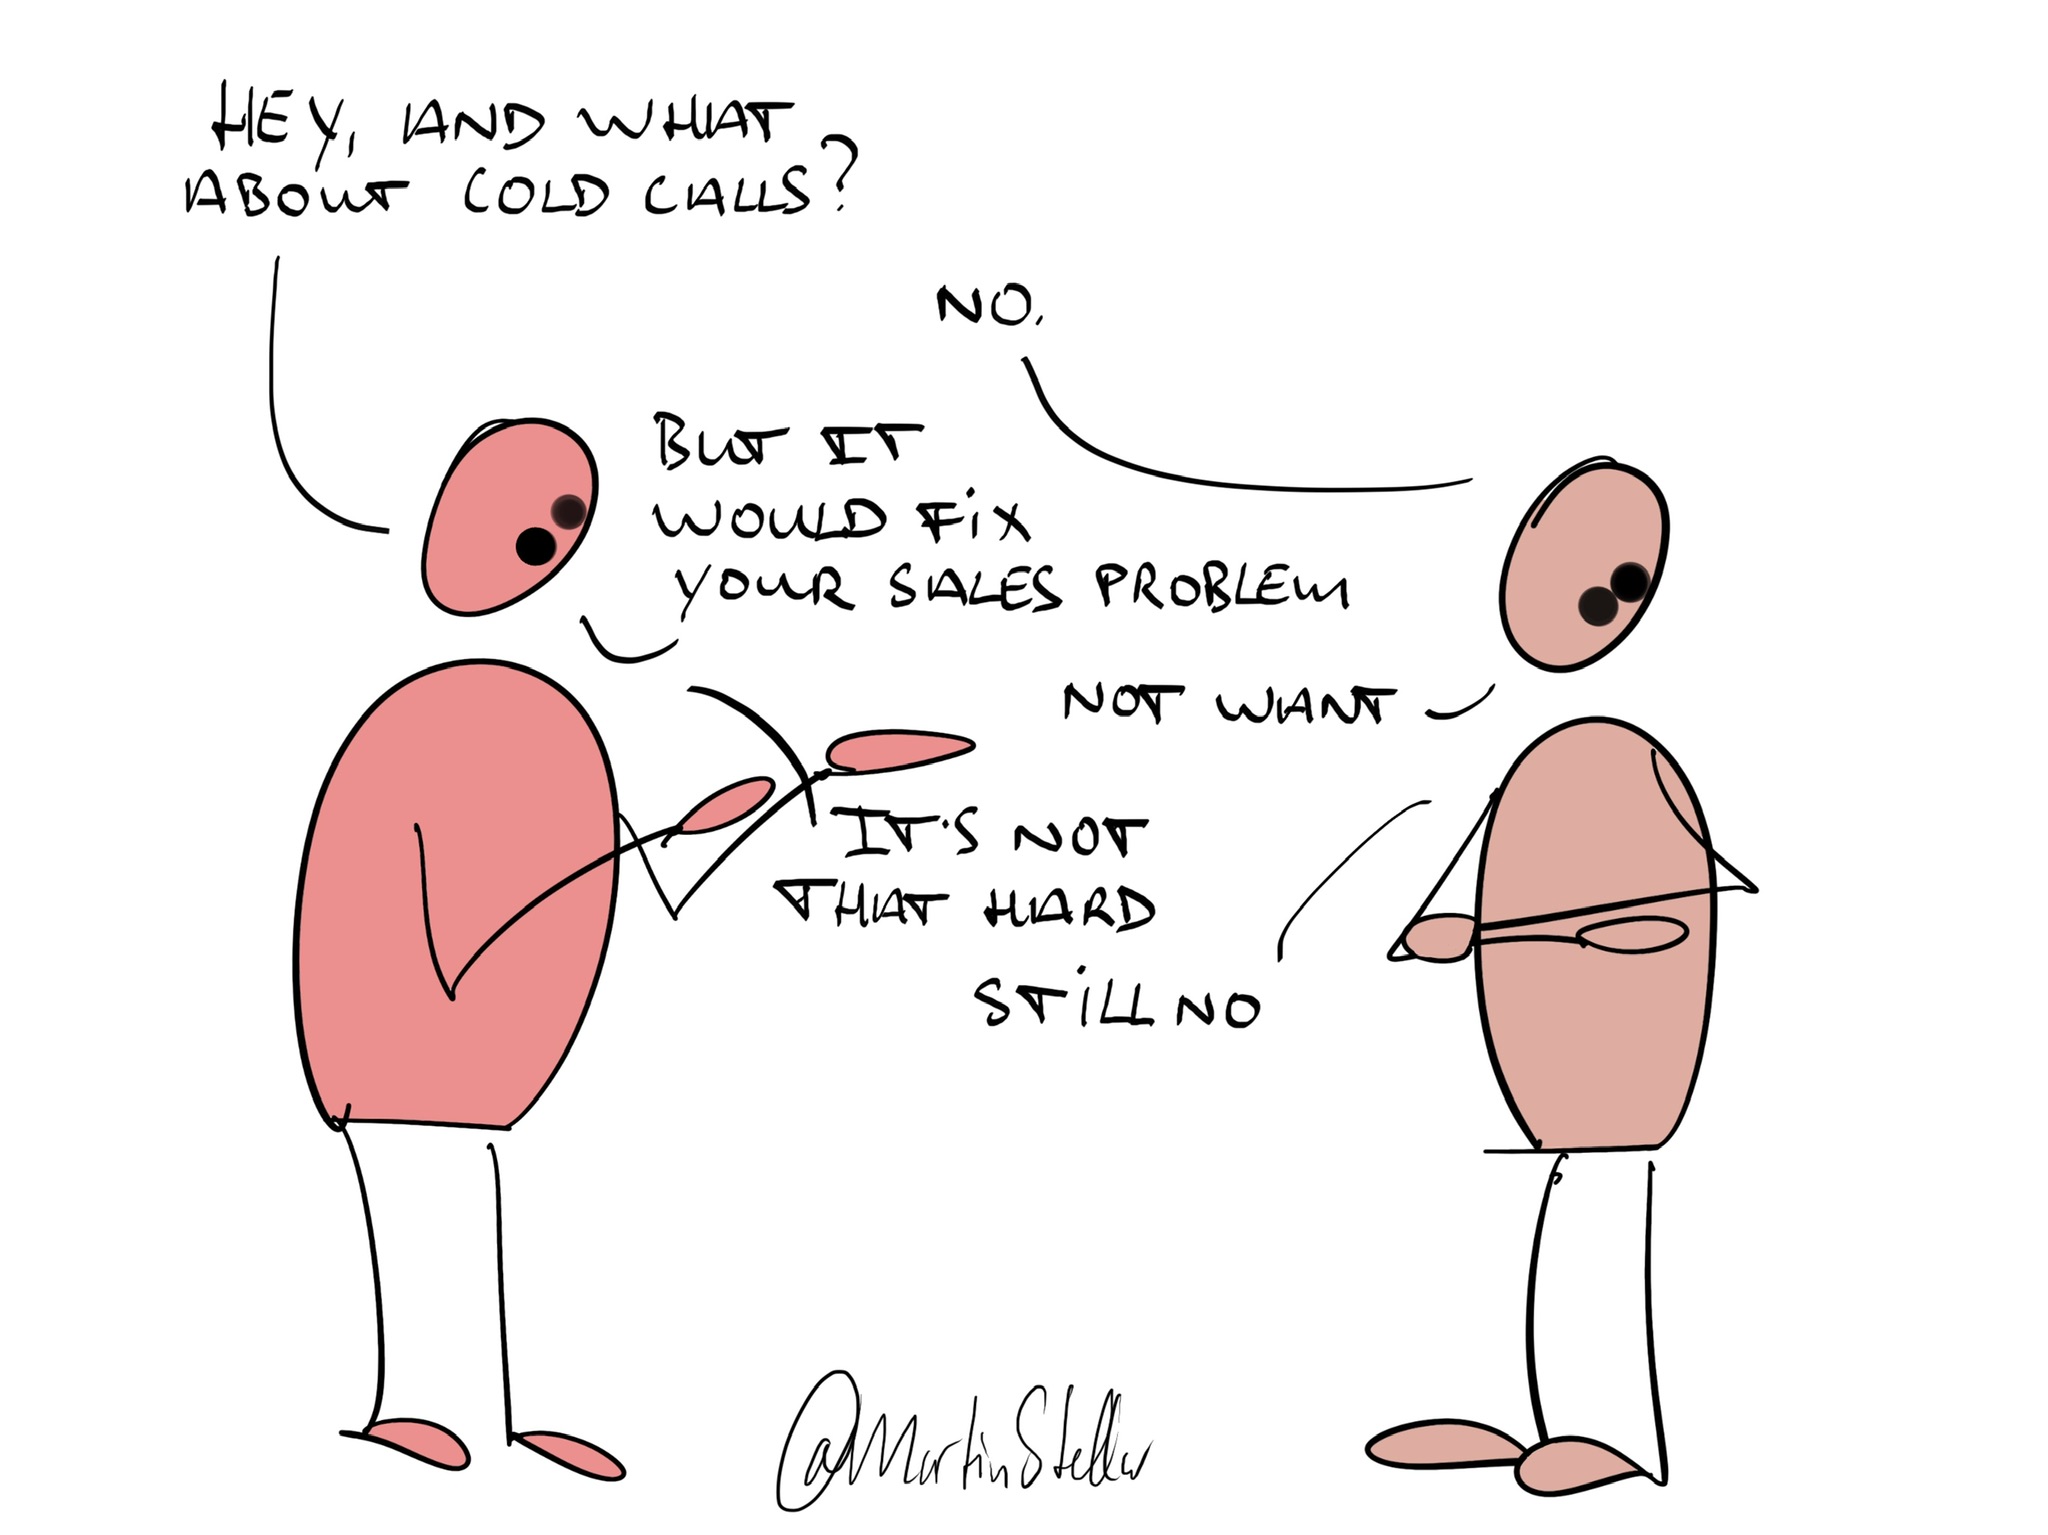 HEY, AND WHAT
ABOUT COLD CALLS?
NO.
BUT IT
WOULD FIX
YOUR SALES PROBLEM
NOT WANT
IT'S NOT
THAT HARD
STILL NO
@MartinStellar